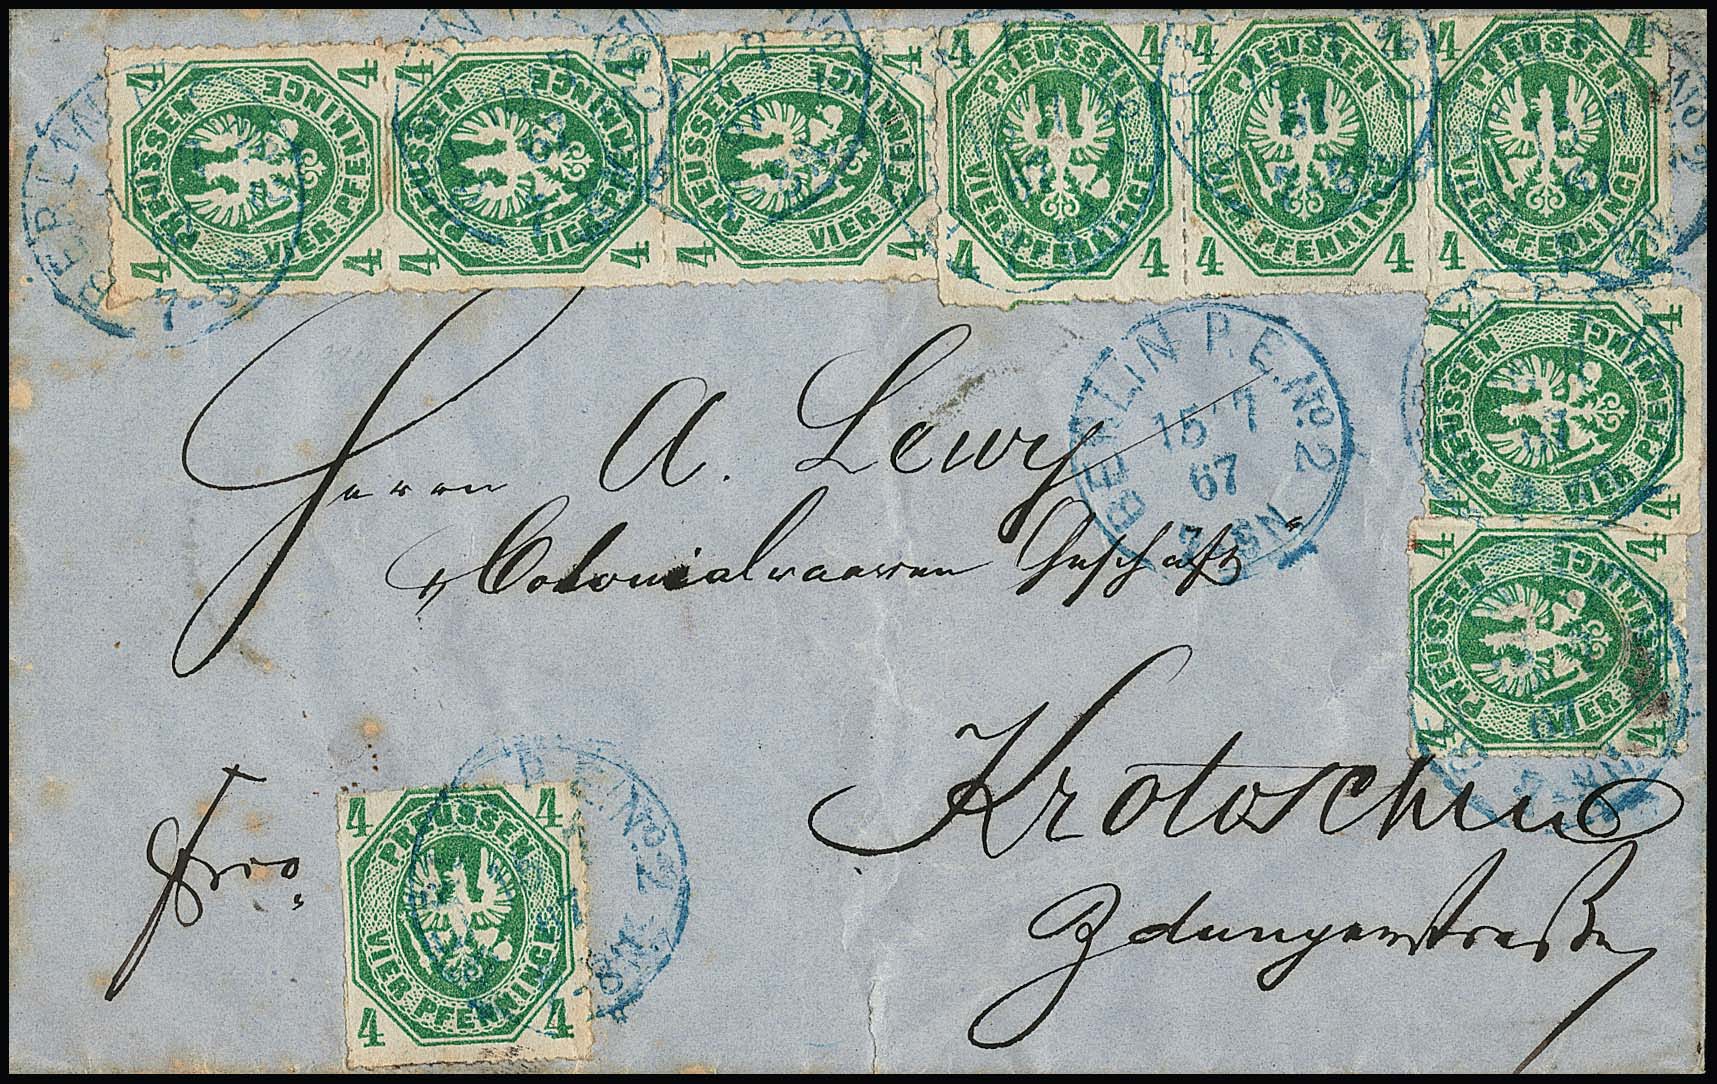 4 4 PREUSSEN VIER PFENNINGE 4 4
4 4 PREUSSEN VIER PFENNINGE 4 4
4 4 PREUSSEN VIER PFENNINGE 4 4
4 4 PREUSSEN VIER PFENNINGE 4 4
4 4 PREUSSEN VIER PFENNINGE 4 4
4 4 PREUSSEN VIER PFENNINGE 4 4
4 4 PREUSSEN VIER PFENNINGE 4 4
4 4 PREUSSEN VIER PFENNINGE 4 4
BERLIN P.E. No. 2
15 7
67
7-8 N
Herrn A. Lewy
"Colonialwaaren Geschäft"
Krotoschin
Zdunyerstraße
fro
4 4 PREUSSEN VIER PFENNINGE 4 4